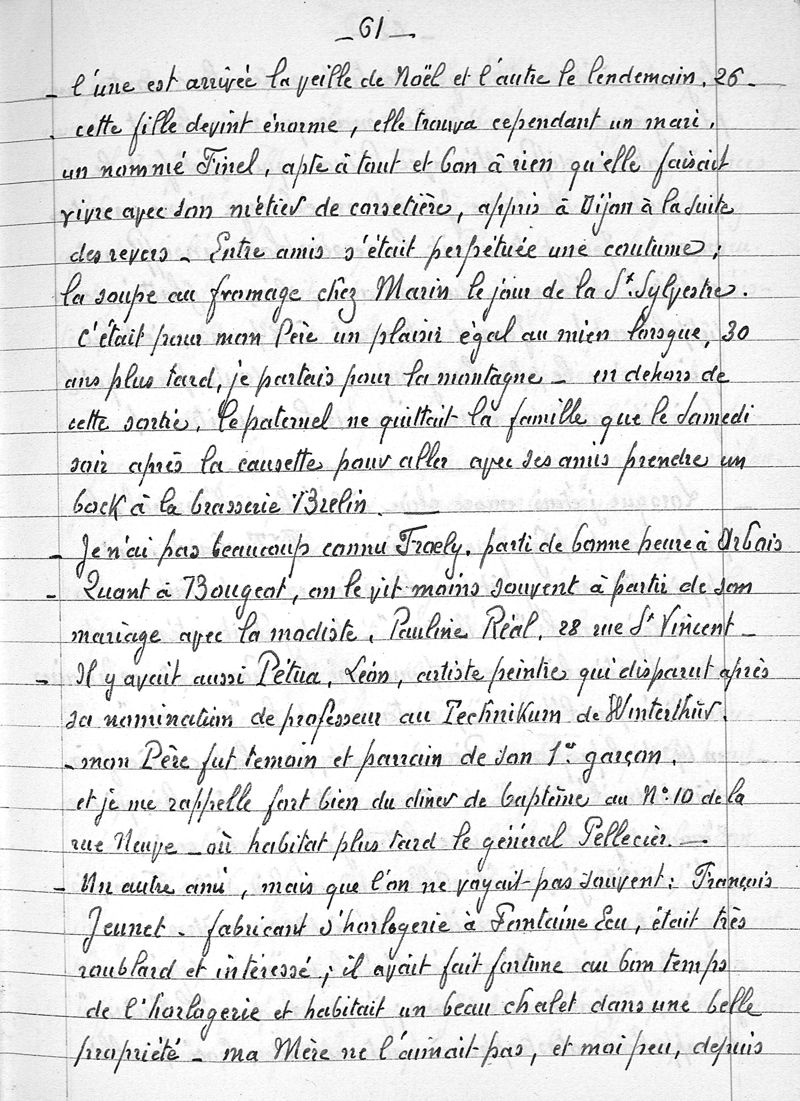 _ 61 _
_ l'une est arrivée la veille de Noël et l'autre le lendemain. 26 _
. cette fille devint énorme, elle trouva cependant un mari,
un nommé Finel, apte à tout et bon à rien qu'elle faisait
vivre avec son métier de corsetière, appris à Dijon à la suite
des revers _ Entre amis s'était perpétuée une coutume ;
la soupe au fromage chez Marin le jour de la St. Sylvestre.
C'était pour mon Père un plaisir égal au mien lorsque, 30
ans plus tard, je partais pour la montagne _ en dehors de
cette sortie, le paternel ne quittait la famille que le Samedi
soir après la causette pour aller avec ses amis prendre un
bock à la brasserie Brelin. _
_ Je n'ai pas beaucoup connu Froely, parti de bonne heure à Orbais
_ Quant à Bougeot, on le vit moins souvent à partir de son
mariage avec la modiste, Pauline Réal, 28 rue St Vincent _
_ Il y avait aussi Pétua, Léon, artiste peintre qui disparut après
sa nomination de professeur au Technikum de Winterthür.
_ mon Père fut temoin et parrain de son 1er garçon,
et je me rappelle fort bien du diner de baptême au N° 10 de la
rue Neuve _ où habitat plus tard le général Pellecier. _
_ Un autre ami, mais que l'on ne voyait pas souvent : François
Jeunet _ fabricant d'horlogerie à Fontaine Ecu, était très
roublard et intéressé ; il avait fait fortune au bon temps
de l'horlogerie et habitait un beau chalet dans une belle
propriété _ ma Mère ne l'aimait pas, et moi peu, depuis